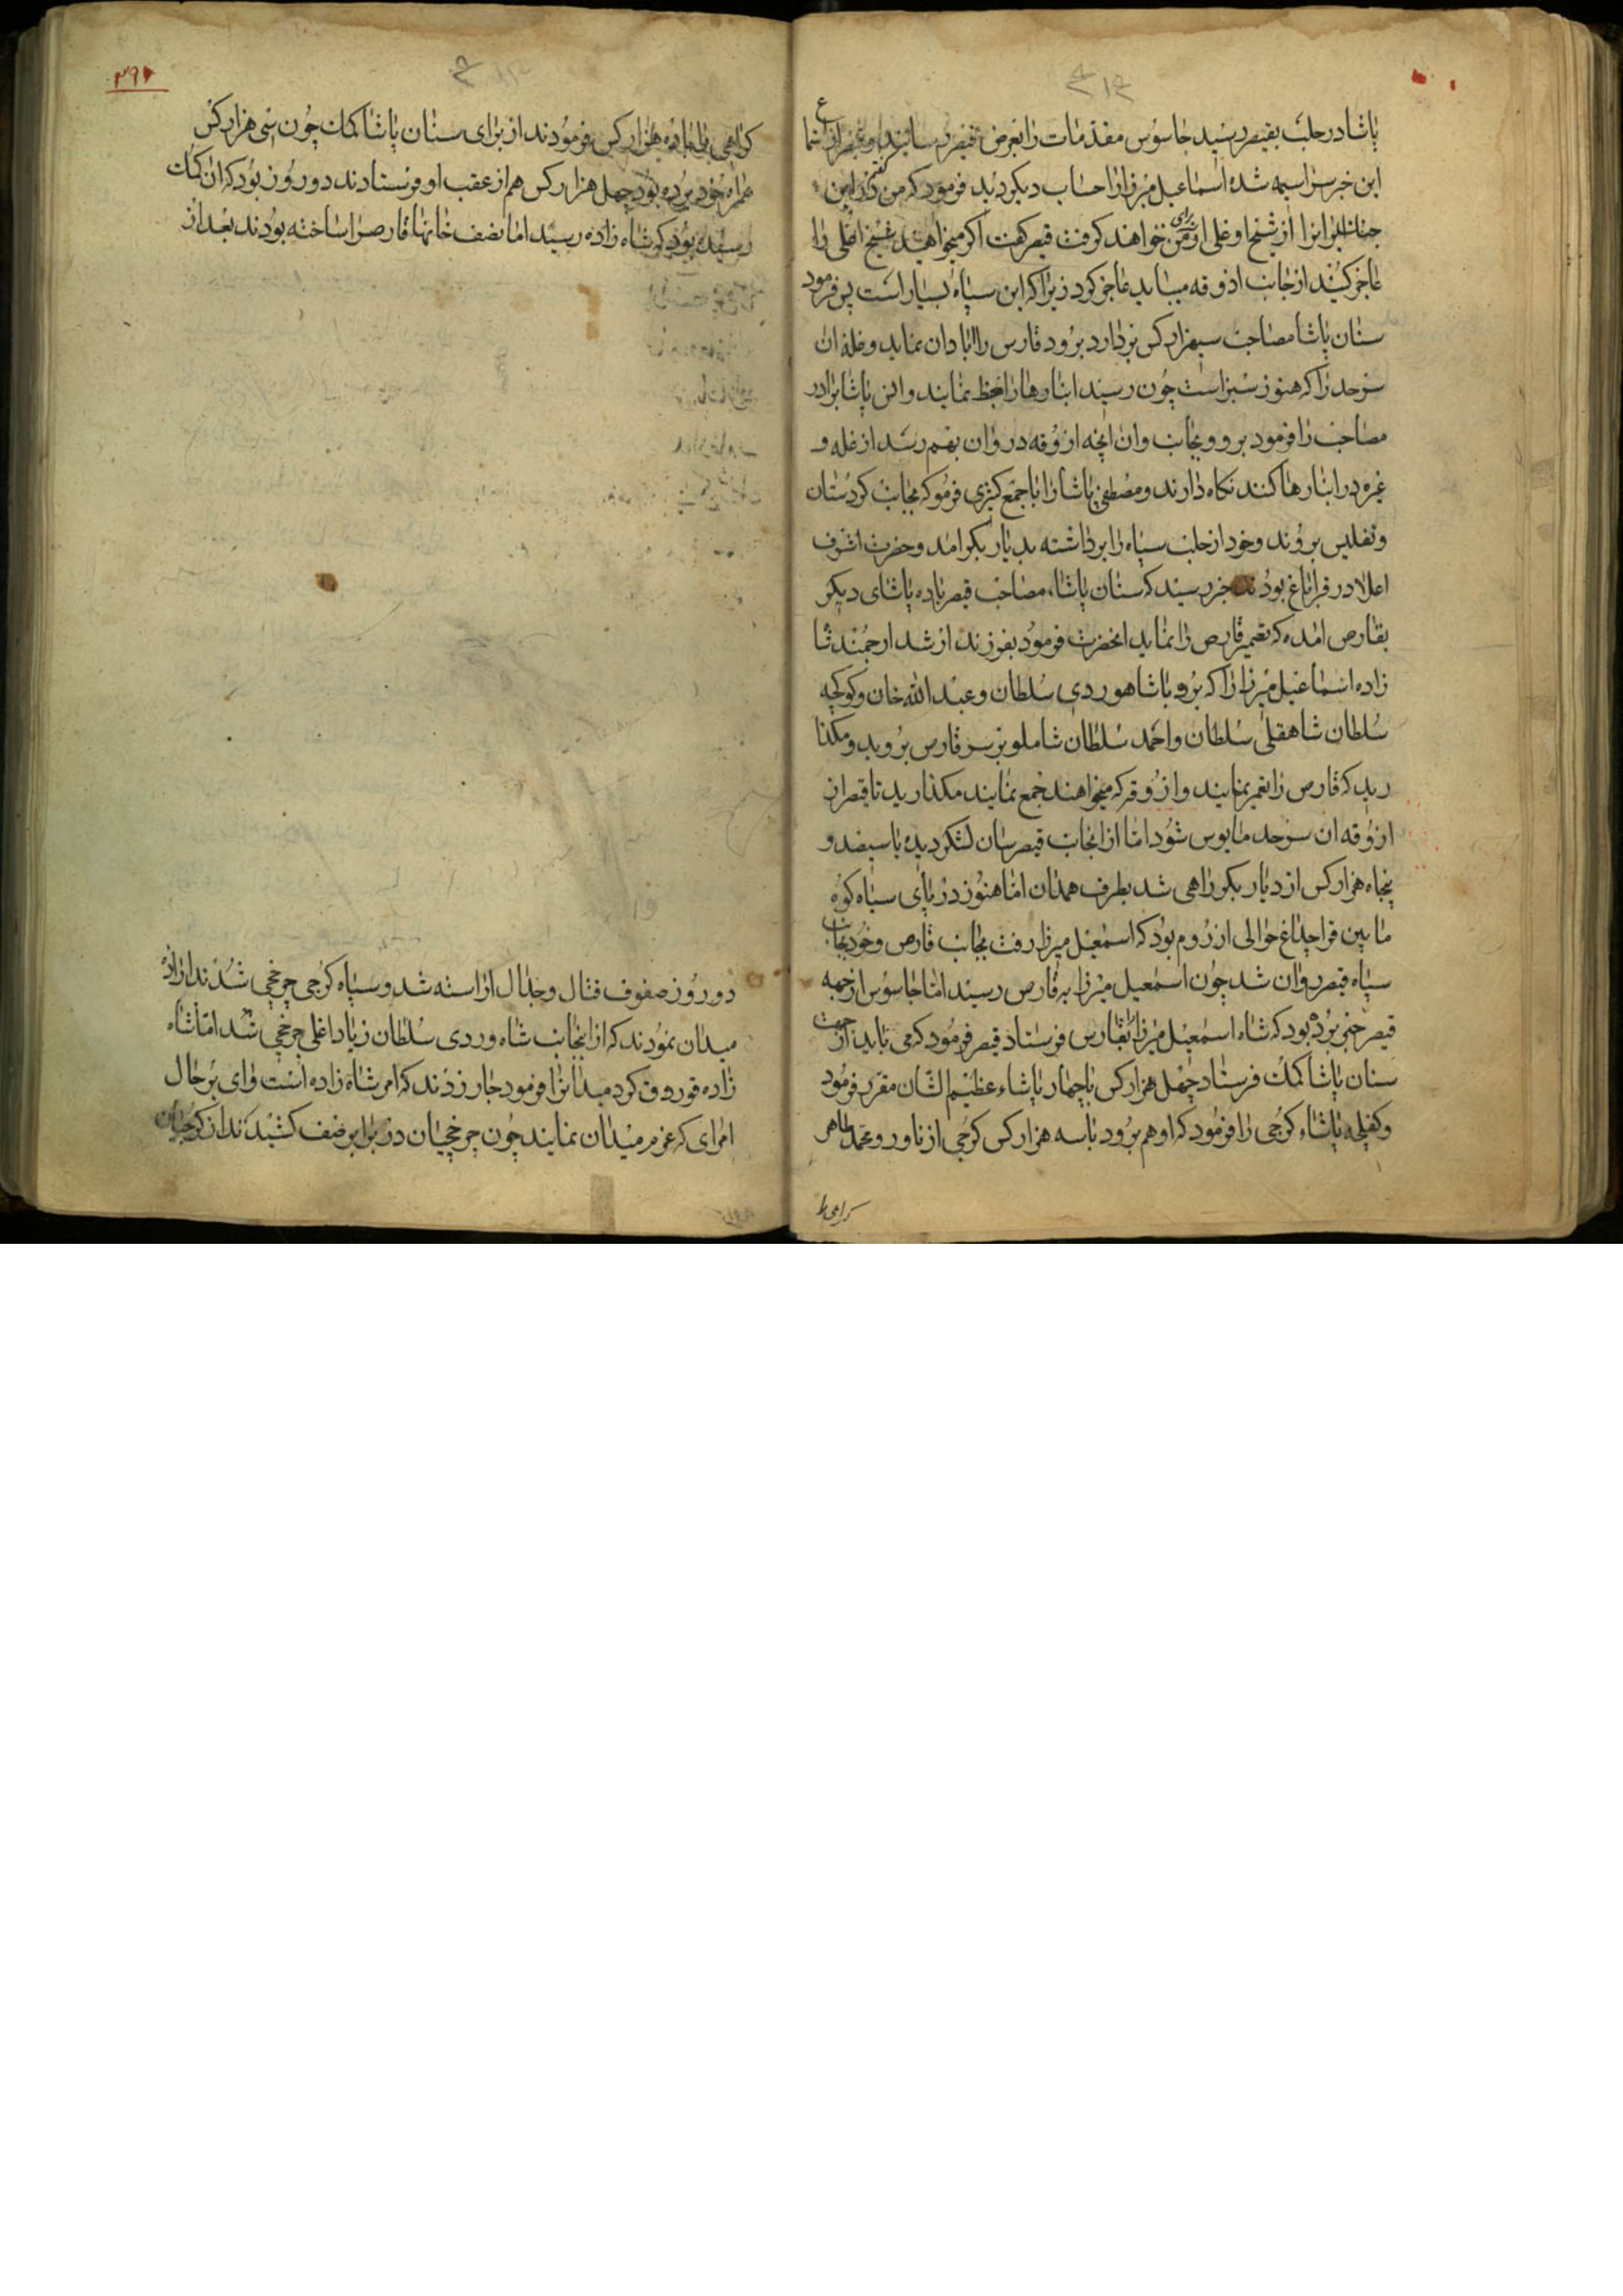 پاشا در حلب بقیصر رسید جاسوس مقدمات را بعرض قیصر رسانید و قیصر از استما ع
این خبر سراسیمه شده اسماعیل میرزا را حساب دیکر دید فرمود که من کفتم که این
جنک ایرانرا از شیخ اوغلی از برای من خواهند کرفت قیصر کفت اکر میخواهید شیخ اغلی را
عاجز کنید از جانب اذوقه میباید عاجز کرد زیرا که این سپاه بسیار است پس فرمود
سنان پاشا مصاحب سیهزار کس بردارد برود قارص را ابادان نماید و غله ان
سرحد را که هنوز سبز است چون رسید انبارها را ضبط نمایند و پاشا برادر
مصاحب را فرمود برو بجانب وان انچه ازوقه در وان بهم رسد از غله و
غیره در انبارها کنند نکاه دارند و مصطفی پاشا را با جمع کثیری فرمو که بجانب کردستان
و تفلیس بروند و خود از حلب سپاه را برداشته بدیار بکر امد و حضرت اشرف
اعلا در قراباغ بودند خبر رسید که سنان پاشا مصاحب قیصر با ده پاشای دیکر
بقارص امده که تعمیر قارص را نماید انحضرت فرمود بفرزند ارشد ارجمند شا
زاده اسماعیل میرزا را که برو با شاهوردی سلطان و عبدالله خان و کوکچه
سلطان شاهقلی سلطان و احمد سلطان شاملو بر سر قارص بروید و مکذا
رید که قارص را تعمیر نمایند و ازوقه که میخواهند جمع نمایند مکذارید تا قیصر از
ازوقه ان سرحد مایوس شود اما از انجانب قیصر سان لشکر دیده با سیصد و
پنجاه هزار کس از دیار بکر راهی شد بطرف همدان اما هنوز در پای سیاه کوه
ما بین قراجداغ حوالی ازروم بود که اسمعیل میرزا رفت بجانب قارص و خود بجانب
سپاه قیصر روان شد چون اسمعیل میرزا به قارص رسید اما جاسوس از جهه
قیصر خبر برده بود که شاه اسمعیل میرزا بقارس فرستاد قیصر فرمود که می باید از جهت
سنان پاشا کمک فرستاد چهل هزار کس با چهار پاشاء عظیم الشان مقرر فرمود
و پاشاء کرجی را فرمود که او هم برود با سه هزار کس کرجی از ناور و محمد طاهر
کرامی را
۳۹۲
کرامی با ده هزار کس فرمودند از برای سنان پاشا کمک چون سی هزار کس
همراه خود برده بود چهل هزار کس هم از عقب او فرستادند دو روز بود که ان کمک
رسیده بود که شاه زاده رسید اما نصف خانهاء قارص را ساخته بودند بعد از
دو روز صفوف قتال و جدال اراسته شد و سپاه کرجی چرخچی شدند اراده
میدان نمودند که از اینجانب شاه وردی سلطان زیاد اغلی چرخچی شد اما شاه
زاده قوروق کرد میدانرا فرمود جار زدند که امر شاه زاده است وای بر حال
امرای که عزم میدان نمایند چون چرخچیان در برابر صف کشیدند از کرجیان